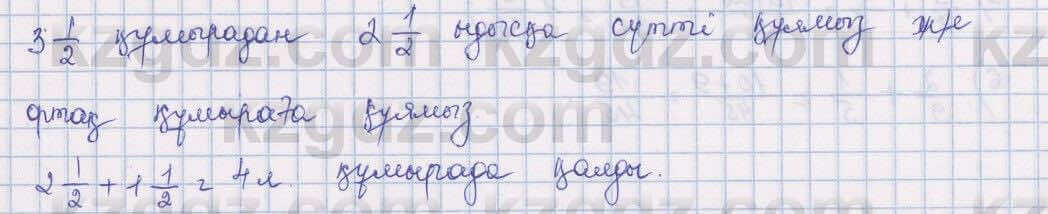 3 1/2 құмырадан 2 1/2 ыдысқа сүтті құямыз ж/е
ортақ құмыраға құямыз.
2 1/2 + 1 1/2 = 4 л құмырада қалды.
kzgdz.com